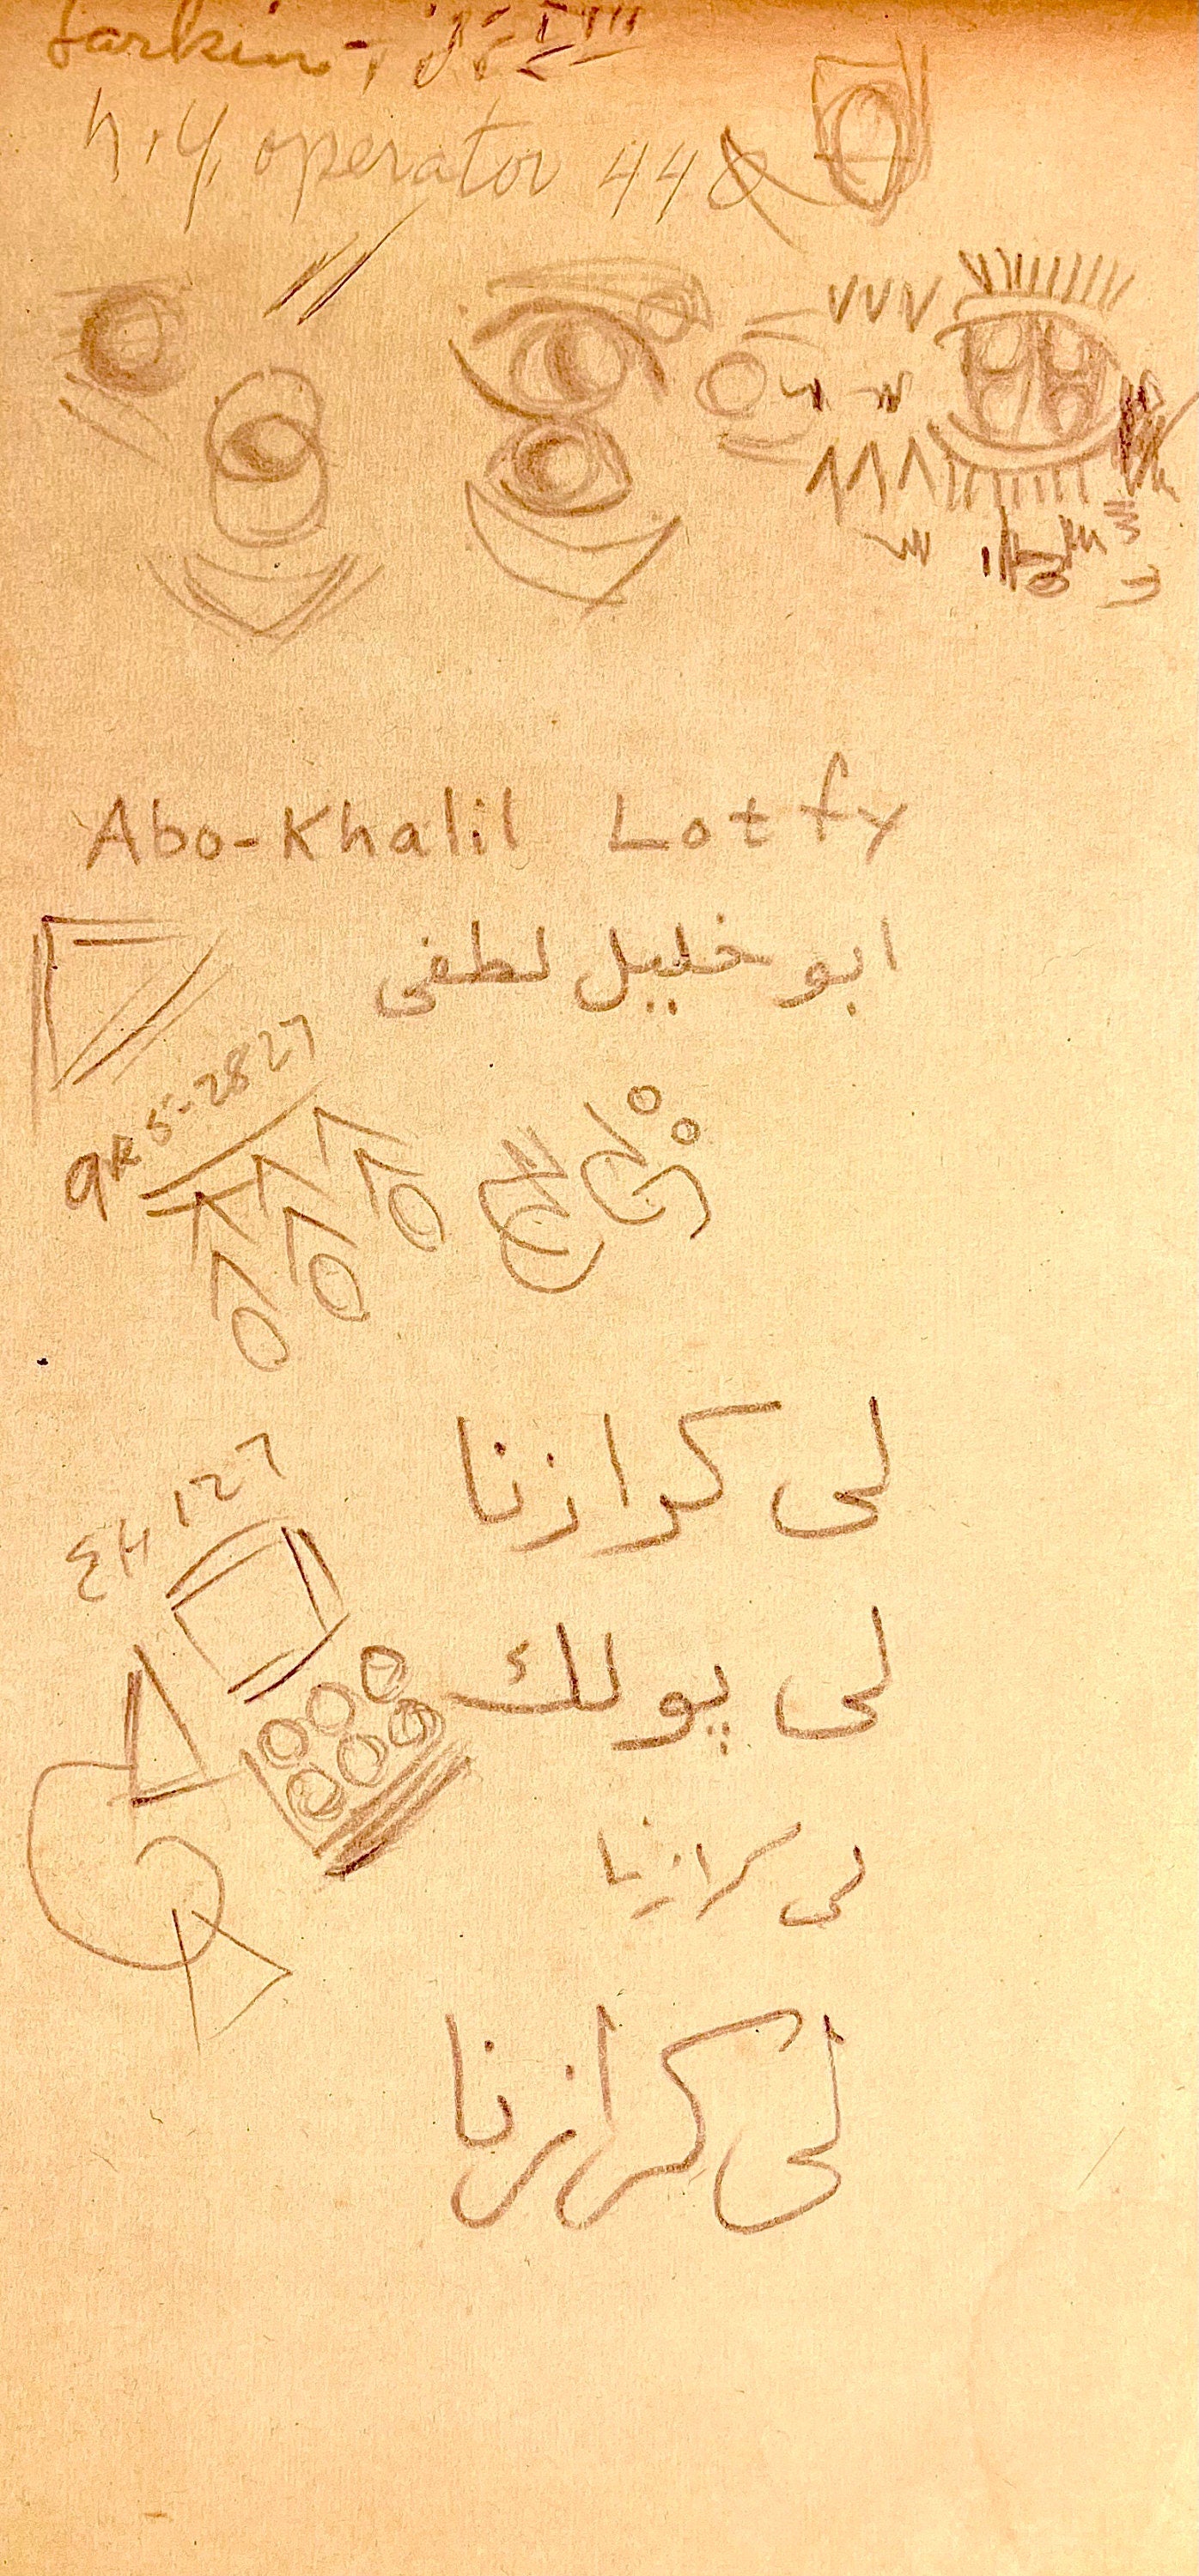 N.Y. operator 44
Abo-Khalil Lotfy
ابو خليل لطفى
GR 5-2827
لى كرازنا
EH 127
لى پولك
لى كرازنا
لى كرازنا